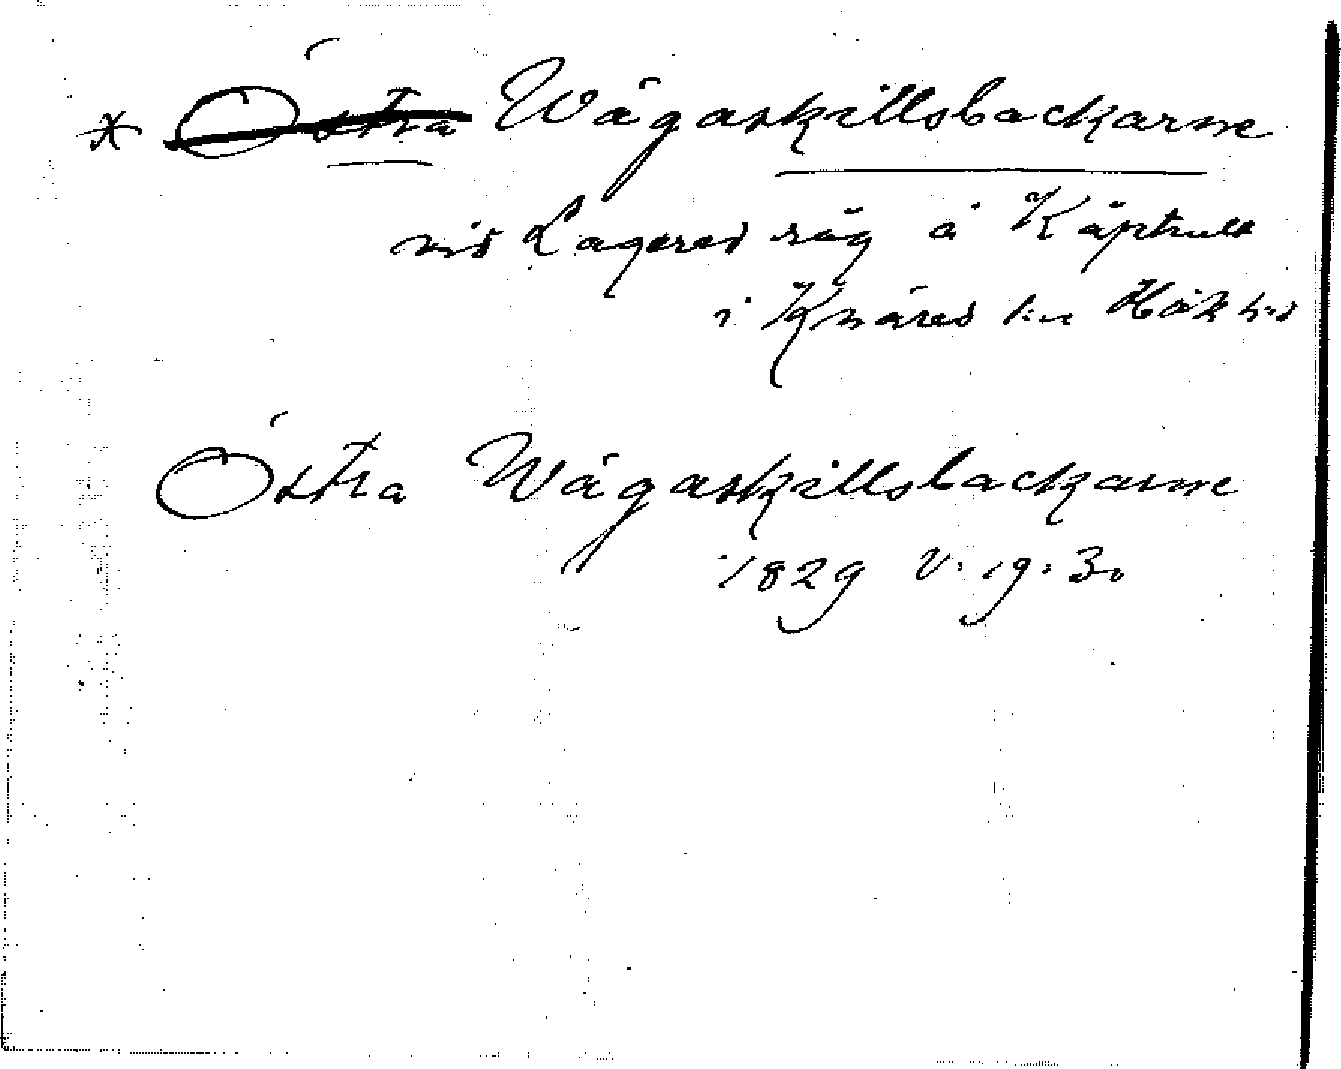 * Östra Wägaskillsbackarne
vid Lagered råg å Käphult
i Knäred s:n Hök h:d
Östra Wägaskillsbackarne
1829 V. 19. 30